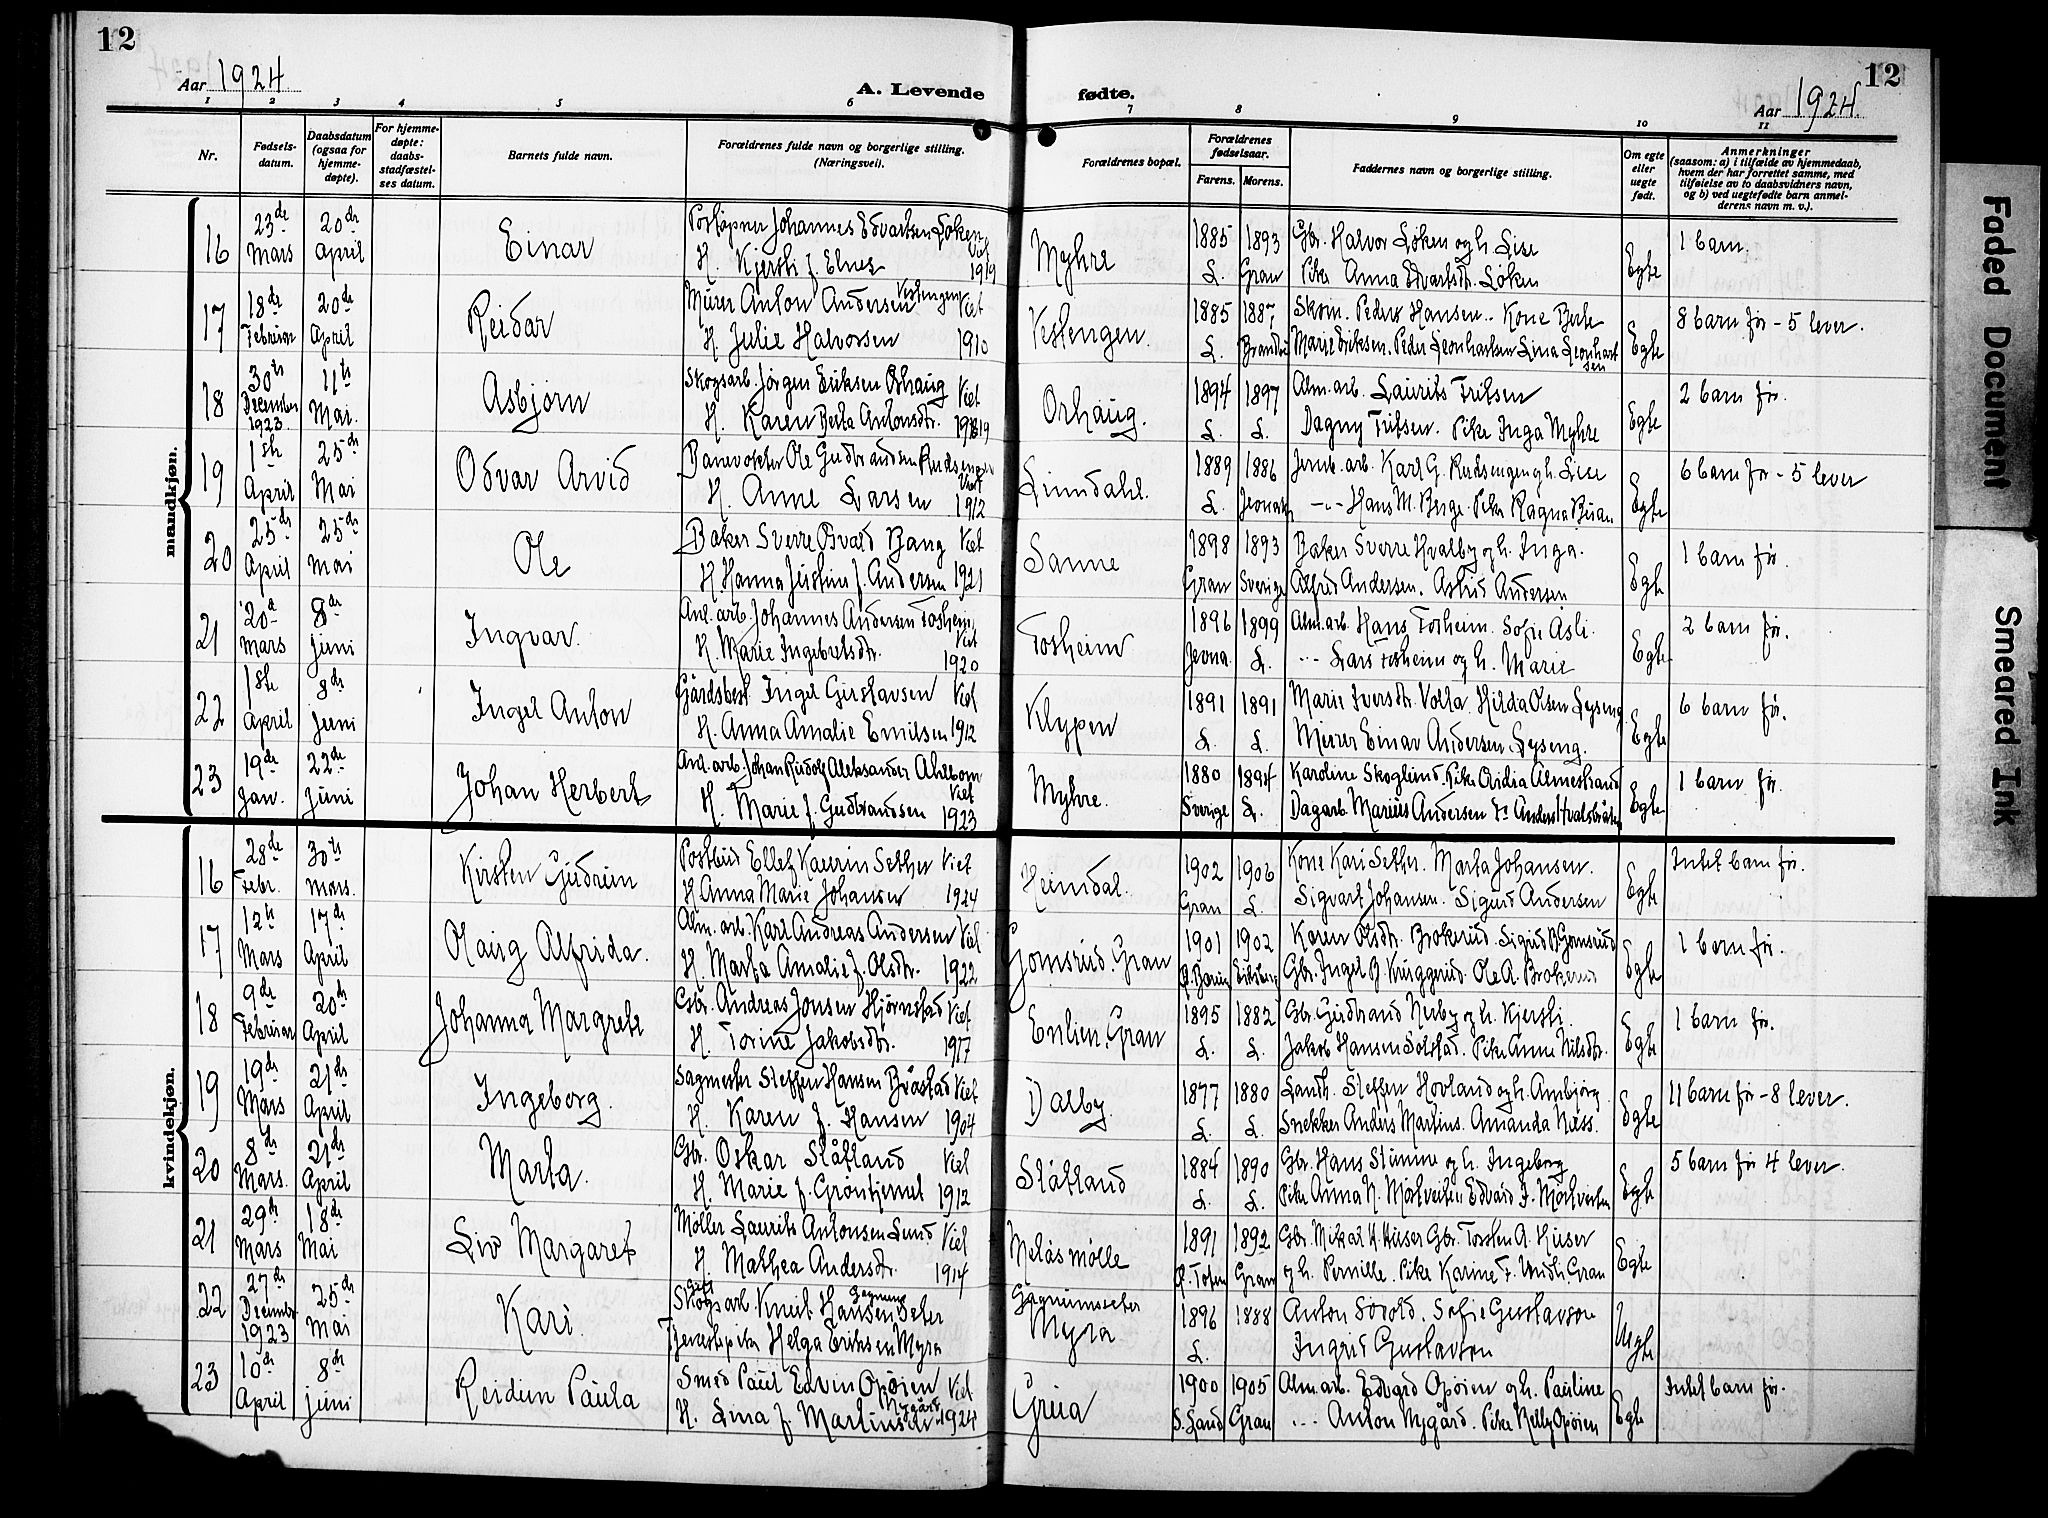 12
Aar 1924.
A. Levende
fødte.
12
Aar 1924.
1 2 3 4 5 6 7 8 9 10 11
Nr.
Fødsels-
datum.
Daabsdatum
(ogsaa for
hjemme-
døpte).
For hjemme-
døpte:
daabs-
stadfæstel-
ses datum.
Barnets fulde navn.
Forældrenes fulde navn og borgerlige stilling.
(Næringsvei).
Forældrenes bopæl.
Forældrenes
fødselsaar.
Farens. Morens.
Faddernes navn og borgerlige stilling.
Om egte
eller
uegte
født.
Anmerkninger
(saasom: a) i tilfælde av hjemmedaab,
hvem der har forrettet samme, med
tilføielse av to daabsvidners navn,
og b) ved uegtefødte barn anmel-
derens navn m. v.).
mandkjøn.
16 23de 20de Einar Postøpner Johannes Edvartsen Løken Viet Myhre 1885 1893 Gbr. Halvor Løken og h. Lise Egte 1 barn.
Mars April H. Kjersti f. Elnes 1919 L. Gran Pike Anna Edvartsdr. Løken
17 18de 20de Reidar Murer Anton Andersen Vestengen Viet Vestengen 1885 1887 Skom. Peders Hansen. Kone Berte Egte 8 barn før - 5 lever.
Februar April H. Julie Halvorsen 1910 L. Brandbu Marie Eriksen. Peder Leonhartsen Lina Leonhart
sen
18 30te 11te Asbjørn Skogsarb. Jørgen Eriksen Orhaug Viet Orhaug. 1894 1897 Alm. arb. Laurits Fritsen Egte 2 barn før.
December 1923. Mai. H. Karen Berta Antonsdtr. 1919 L. L. Dagny Fritsen. Pike Inga Myhre
19 1ste 25de Odvar Arvid Banevokter Ole Gudbrandsen Rudsengen Viet Lunndahl. 1889 1886 Jernb. arb. Karl G. Rudsengen og h. Lise Egte 6 barn før - 5 lever
April Mai H. Anne Larsen 1912 L. Jevnaker -"- Hans M. Berge. Pike Ragna
20 25de 25de Ole Baker Sverre Osvald Bang Viet Sanne 1898 1893 Baker Sverre Hvalby og h. Inga. Egte 1 barn før.
April Mai H. Hanna Justine f. Andersen 1921 Gran Sverige Alfred Andersen. Astrid Andersen
21 20de 8de Ingvar. Anl. arb. Johannes Andersen Tosheim Viet Tosheim 1896 1899 Alm. arb. Hans Tosheim. Sofie Asli. Egte 2 barn før.
Mars Juni H. Marie Ingebretsdtr. 1920 Jevna. L. -"- Lars Tosheim og h. Marie
22 1ste 8de Ingel Anton Gårdsbest. Ingel Gustavsen Viet Klypen 1891 1891 Marie Iversdtr. Volla. Hilda Olsen Lyseng Egte 6 barn før.
April Juni H. Anna Amalie Emilsen 1912 L. L. Murer Einar Andersen Lyseng.
23 19de 22de Johan Herbert Anl. arb. Johan Rudolf Aleksander Ahlbom Viet Myhre. 1880 1894 Karoline Skoglund. Pike Ovidia Almestrand Egte 1 barn før.
Jan. Juni H. Marie f. Gudbrandsen 1923 Sverige L. Dagarb. Marius Andersen Anders Hvalsbråten
kvindekjøn.
16 28de 30te Kirsten Gudrun Postbud Ellef Kaurin Sether Viet Heimdal. 1902 1906 Kone Kari Sether. Marta Johansen. Egte Intet barn før.
Febr. Mars. H. Anna Marie Johansen 1924 Gran L. Sigvart Johansen. Sigurd Andersen
17 12te 17de Olaug Alfrida. Alm. arb. Karl Andreas Andersen Viet Gomsrud. Gran 1901 1902 Karen Olsdtr. Brøkerud. Sigrid B. Gomsrud Egte 1 barn før.
Mars April H. Marta Amalie f. Olsdtr. 1922 Eidsberg Gbr. Ingel B. Kruggerud. Ole A. Brøkerud
18 9de 20de Johanna Margrete Gbr. Andreas Jonsen Hjørnestad Viet Enlien. Gran 1895 1882 Gbr. Gudbrand Nerby og h. Kjersti. Egte 1 barn før.
Februar April H. Torine Jakobsdtr. 1917 L. L. Jakob Hansen Solstad. Pike Anne Nilsdtr.
19 19de 21de Ingeborg. Sagmester Steffen Hansen Bråstad Viet Dalby. 1877 1880 Landh. Steffen Hovland og h. Ambjørg Egte 11 barn før - 8 lever.
Mars April H. Karen f. Hansen 1904 L. L. Snekker Anders Martins. Amanda Næss.
20 8de 21de Marta. Gbr. Oskar Slåtland Viet Slåtland 1884 1890 Gbr. Hans Stumne og h. Ingeborg Egte 5 barn før 4 lever.
Mars. April H. Marie f. Grøntjernet 1912 L. L. Pike Anna N. Mørtveiten Edvard J. Mørtveiten
21 29de 18de Liv Margaret Møller Laurits Antonsen Lund Viet Melås mølle 1891 1892 Gbr. Mikal H. Huser Gbr. Torsten A. Huser Egte
Mars Mai H. Mathea Andersdtr. 1914 Ø. Toten Gran og h. Pernille. Pike Karine F. Undli. Gran
22 27de 25de Kari. Gift Skogsarb. Knut Hansen Seter Gagnumseter 1896 1888 Anton Sovold. Sofie Gustavson Uegte
December 1923 Mai Tjenestepike Helga Eriksen Myra Myra L. Ingrid Gustavson
23 10de 8de Reidun Paula Smed Paul Edvin Opøien Viet Grua 1900 1905 Alm. arb. Edvard Opøien og h. Pauline Egte Intet barn før.
April Juni H. Lina f. Martinsen Nygård 1924 S. Land Gran -"- Anton Nygård. Pike Nelly Opøien
Faded Document
Smeared Ink